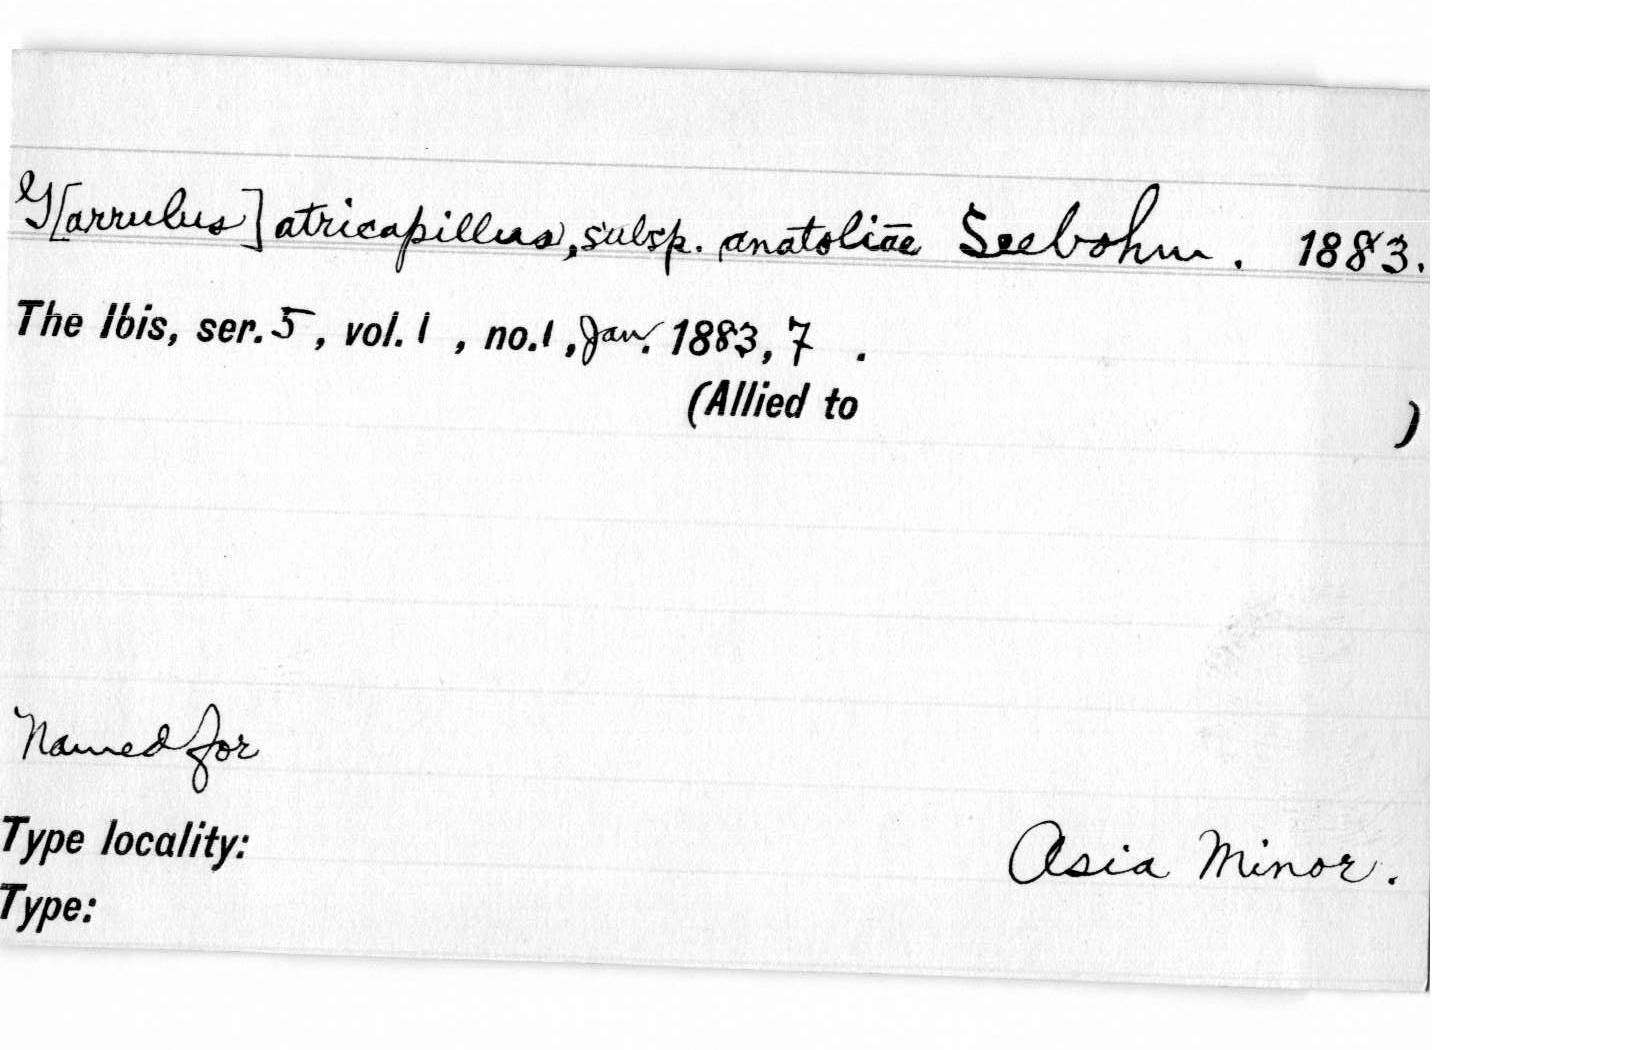 G[arrulus] atricapillus, subsp. anatoliae Seebohm. 1883.
The Ibis, ser. 5, vol. 1, no. 1, Jan. 1883, 7.
(Allied to )
Named for
Type locality: Asia Minor.
Type: